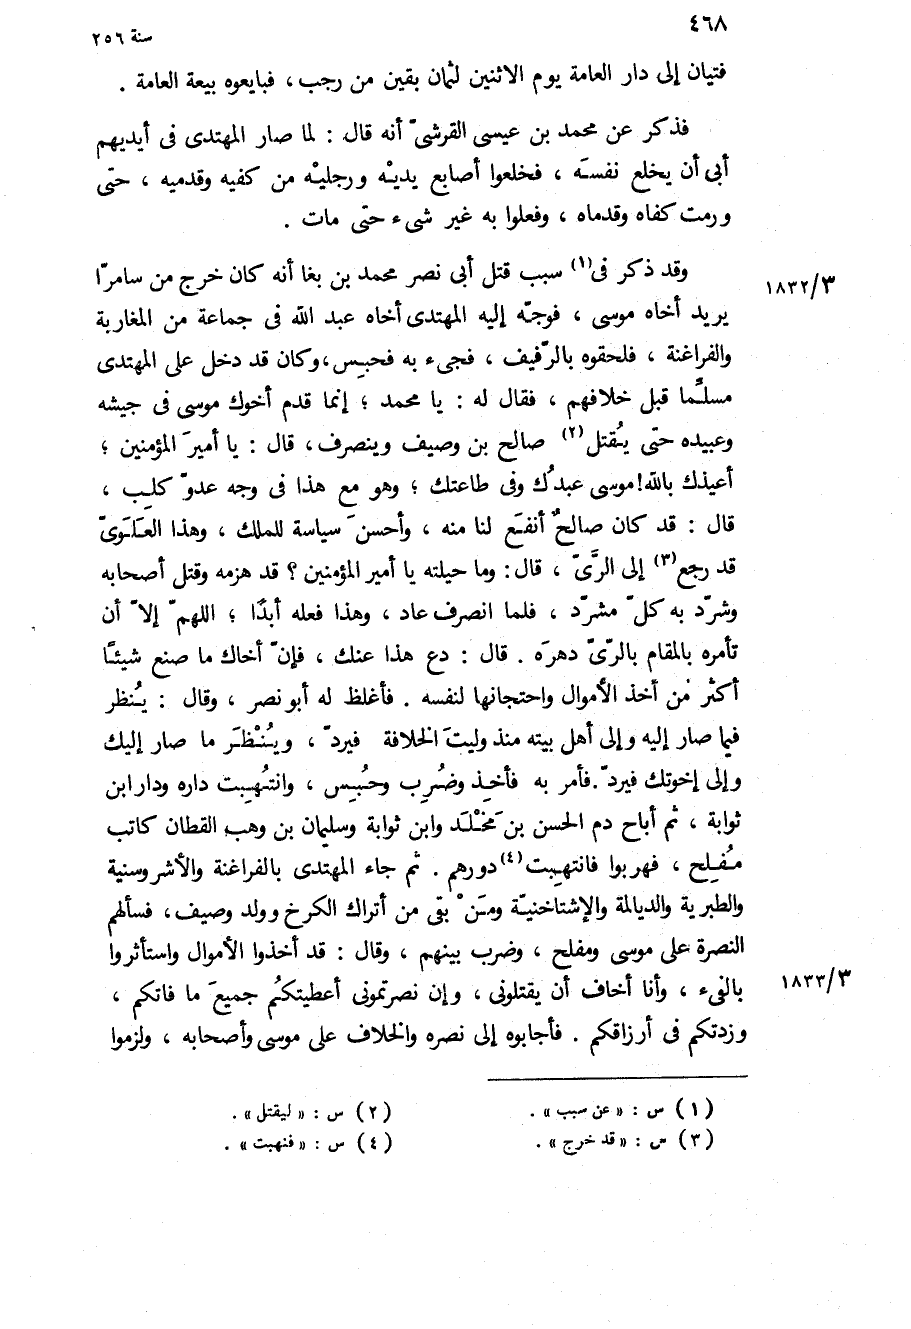 ٤٦٨
سنة ٢٥٦
فتيان إلى دار العامة يوم الاثنين لثمان بقين من رجب، فبايعوه بيعة العامة .
فذكر عن محمد بن عيسى القرشىّ أنه قال : لما صار المهتدى فى أيديهم
أبى أن يخلع نفسَه ، فخلعوا أصابع يديْه ورجليْه من كفيه وقدميه ، حتى
ورمت كفاه وقدماه ، وفعلوا به غير شىء حتى مات .
وقد ذكر فى(١) سبب قتل أبى نصر محمد بن بغا أنه كان خرج من سامرّا
١٨٣٢/٣
يريد أخاه موسى ، فوجّه إليه المهتدى أخاه عبد الله فى جماعة من المغاربة
والفراغنة ، فلحقوه بالرّفيف ، فجىء به فحبِس،وكان قد دخل على المهتدى
مسلِّما قبل خلافهم ، فقال له : يا محمد ؛ إنما قدم أخوك موسى فى جيشه
وعبيده حتى يُقتل(٢) صالح بن وصيف وينصرف، قال : يا أميرَ المؤمنين ؛
أعيذك بالله!موسى عبدُك وفى طاعتك ؛ وهو مع هذا فى وجه عدوّ كلِب ،
قال : قد كان صالحٌ أنفَع لنا منه ، وأحسنَ سياسة للملك ، وهذا العلَوىّ
قد رجع(٣) إلى الرَّىّ ، قال: وما حيلته يا أمير المؤمنين ؟ قد هزمه وقتل أصحابه
وشرّد به كلّ مشرّد ، فلما انصرف عاد ، وهذا فعله أبدًا ؛ اللهمّ إلاّ أن
تأمره بالمقام بالرّىّ دهرَه . قال : دع هذا عنك ، فإنّ أخاك ما صنع شيئًا
أكثر من أخذ الأموال واحتجانها لنفسه . فأغلظ له أبو نصر ، وقال : يُنظر
فيما صار إليه وإلى أهل بيته منذ وليتَ الخلافة فيردّ ، ويُنْظَر ما صار إليك
وإلى إخوتك فيردّ .فأمر به فأخِذ وضُرِب وحُبِس ، وانتُهِبت داره ودار ابن
ثوابة ، ثم أباح دم الحسن بن مَخْلَد وابن ثوابة وسليمان بن وهب القطان كاتب
مُفلِح ، فهربوا فانتهِبت(٤)دورهم . ثم جاء المهتدى بالفراغنة والأشروسنية
والطبرية والديالمة والإشتاخنيّة ومَنْ بقى من أتراك الكرخ وولد وصيف، فسألهم
النصرة على موسى ومفلح ، وضرب بينهم ، وقال : قد أخذوا الأموال واستأثروا
بالفىء ، وأنا أخاف أن يقتلونى ، وإن نصرتمونى أعطيتكُم جميعَ ما فاتكم ،
١٨٣٣/٣
وزدتكم فى أرزاقكم . فأجابوه إلى نصره والخلاف على موسى وأصحابه ، ولزموا
(١) س : « عن سبب » .
(٢) س : « ليقتل » .
(٣) س : « قد خرج » .
(٤) س : « فنهبت » .